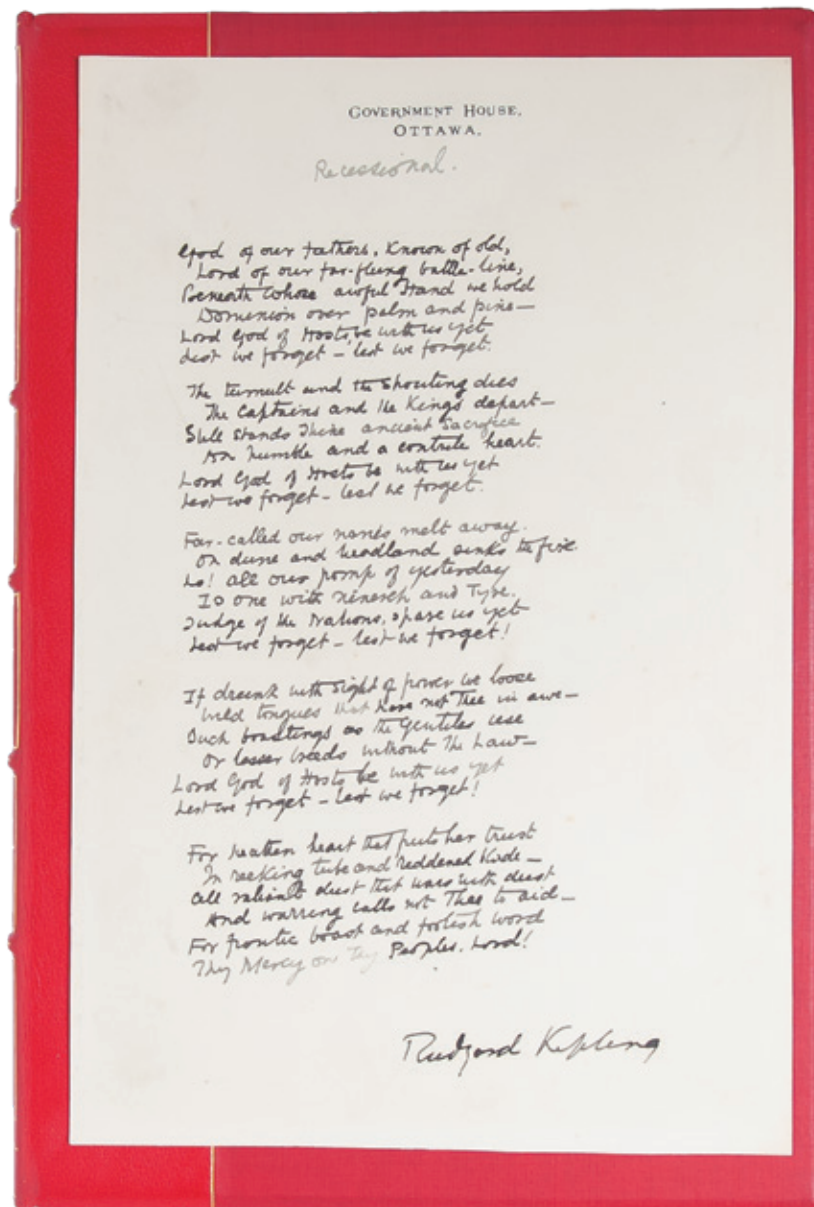 GOVERNMENT HOUSE,
OTTAWA.
Recessional.
God of our fathers, known of old,
Lord of our far-flung battle-line,
Beneath Whose awful Hand we hold
Dominion over palm and pine—
Lord God of Hosts, be with us yet
Lest we forget – lest we forget.
The tumult and the shouting dies
The Captains and the Kings depart—
Still stands Thine ancient Sacrifice
An humble and a contrite heart.
Lord God of Hosts be with us yet
Lest we forget – lest we forget.
Far-called our navies melt away.
On dune and headland sinks the fire
Lo! all our pomp of yesterday
Is one with Nineveh and Tyre.
Judge of the Nations, spare us yet
Lest we forget – lest we forget!
If drunk with sight of power we loose
Wild tongues that have not Thee in awe—
Such boastings as the Gentiles use
Or lesser breeds without the Law—
Lord God of Hosts be with us yet
Lest we forget – lest we forget!
For heathen heart that puts her trust
In reeking tube and reddened
All valiant dust that with dust
And warring calls not Thee to aid—
For frantic boast and foolish word
Thy Mercy on thy Peoples, Lord!
Rudyard Kipling